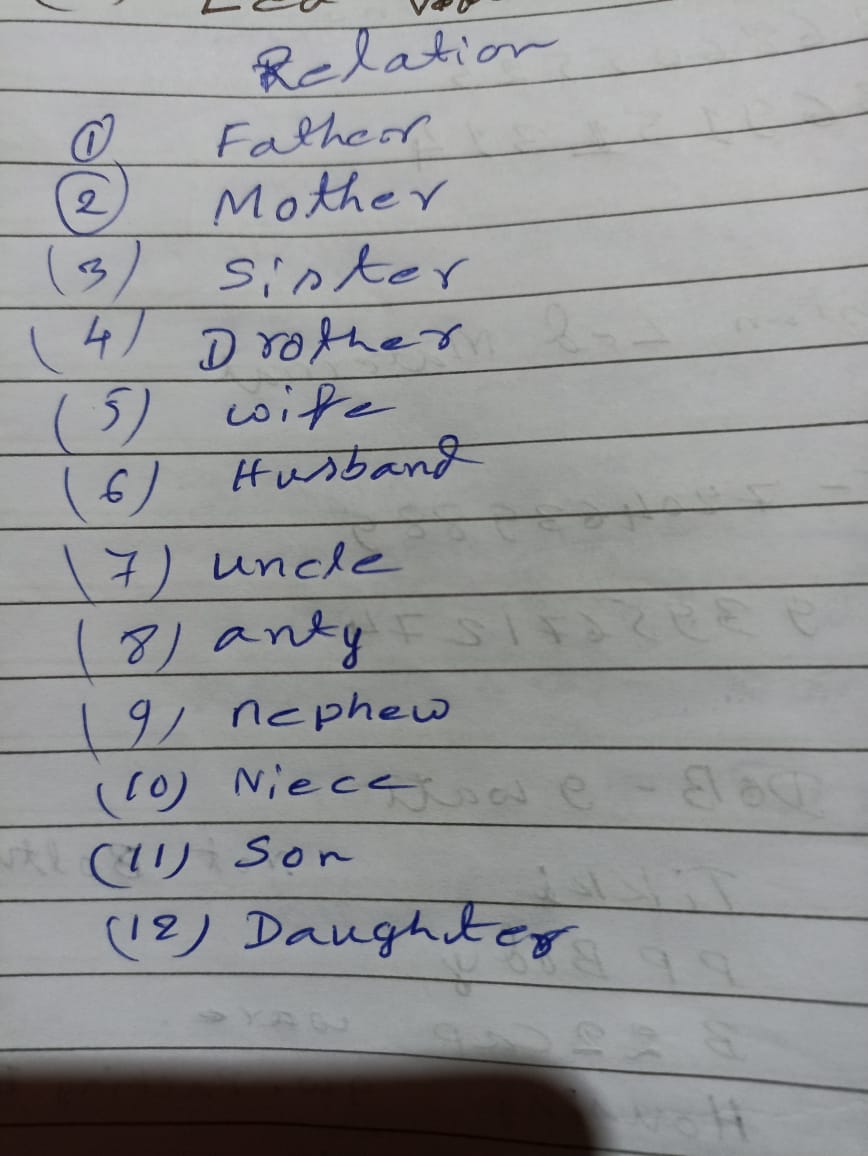 Relation
① Father
② Mother
(3) Sister
(4) Drother
(5) wife
(6) Husband
(7) uncle
(8) anty
(9) nephew
(10) Niece
(11) Son
(12) Daughter